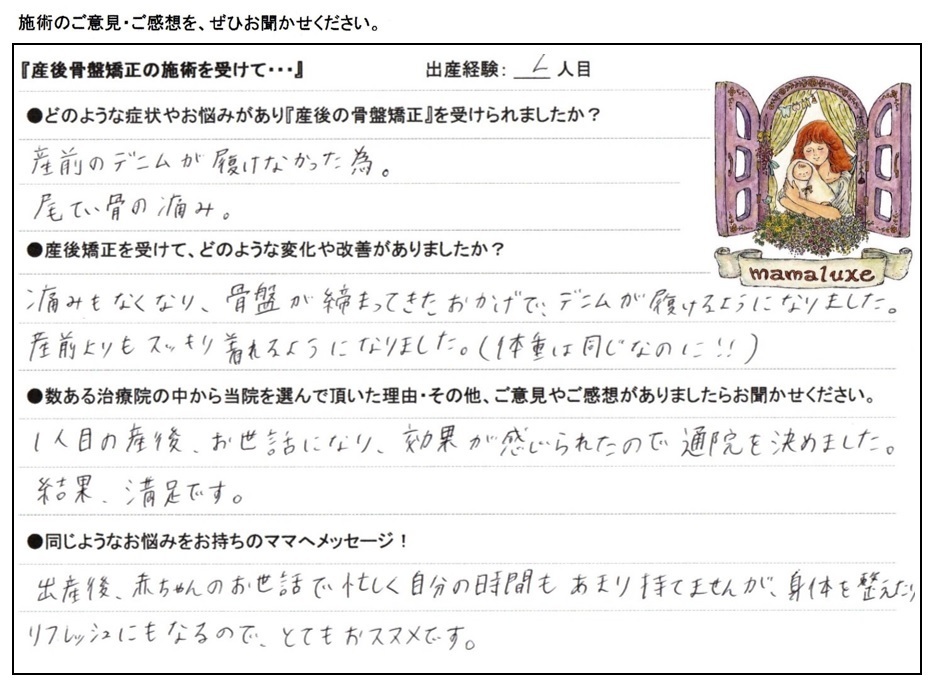 施術のご意見・ご感想を、ぜひお聞かせください。
『産後骨盤矯正の施術を受けて・・・』 出産経験: 2 人目
●どのような症状やお悩みがあり『産後の骨盤矯正』を受けられましたか？
産前のデニムが履けなかった為。
尾てい骨の痛み。
●産後矯正を受けて、どのような変化や改善がありましたか？
mamaluxe
痛みもなくなり、骨盤が締まってきたおかげで、デニムが履けるようになりました。
産前よりもスッキリ着れるようになりました。(体重は同じなのに!!)
●数ある治療院の中から当院を選んで頂いた理由・その他、ご意見やご感想がありましたらお聞かせください。
1人目の産後、お世話になり、効果が感じられたので通院を決めました。
結果、満足です。
●同じようなお悩みをお持ちのママへメッセージ！
出産後、赤ちゃんのお世話で忙しく自分の時間もあまり持てませんが、身体を整えたり
リフレッシュにもなるので、とてもおススメです。